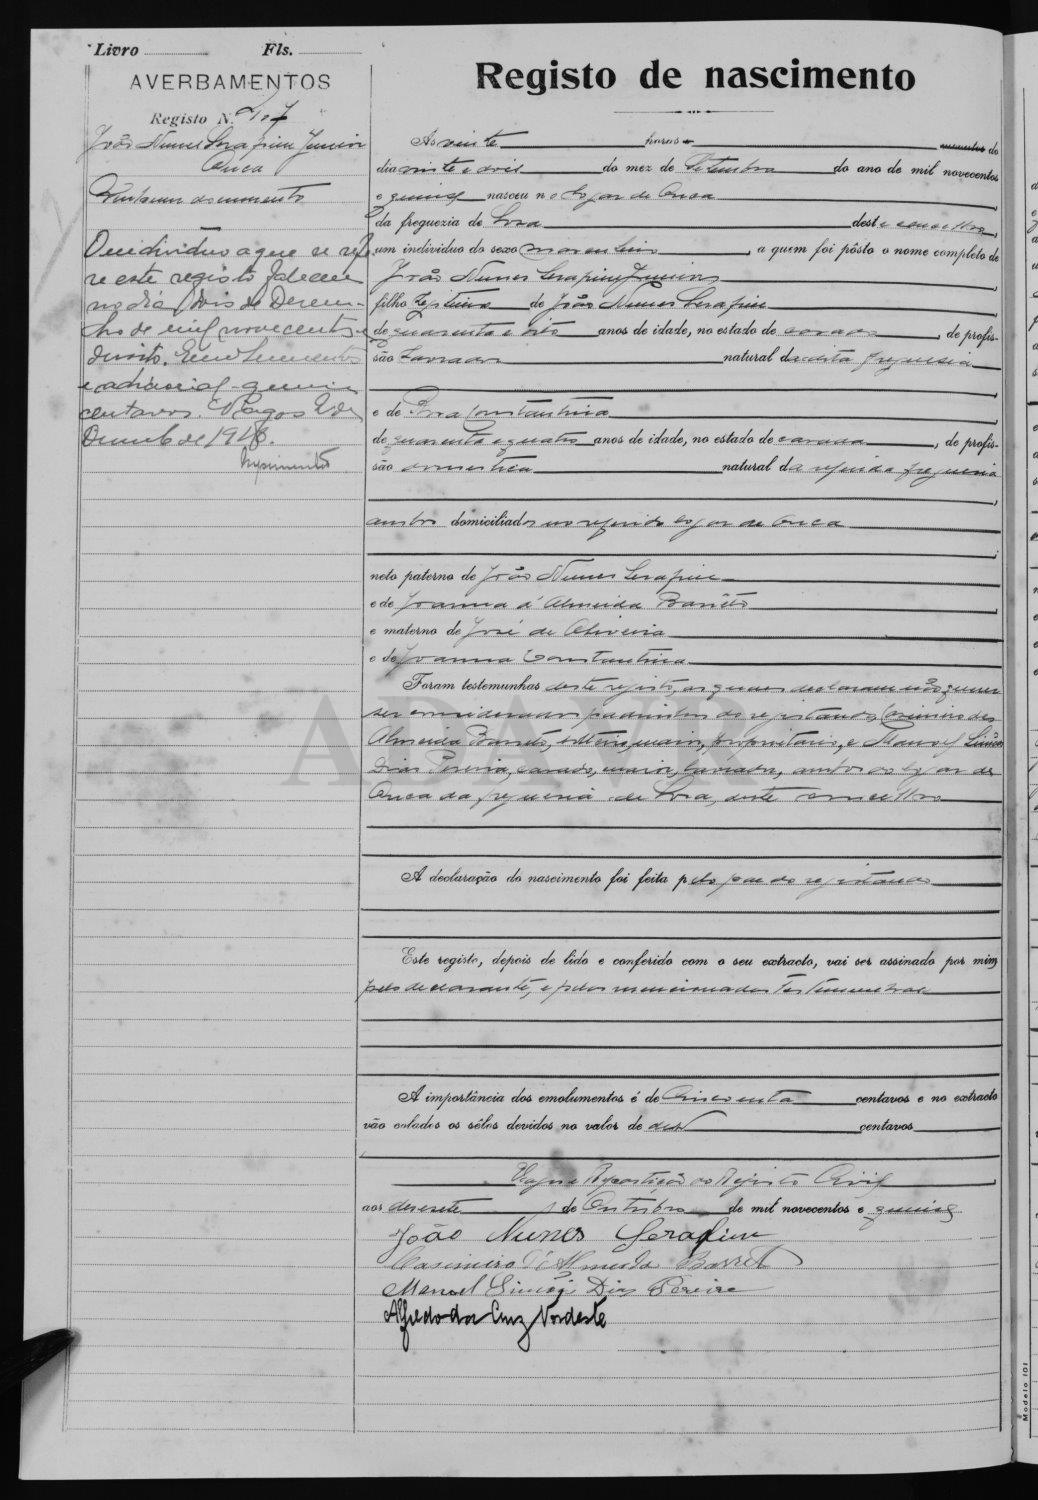 Livro Fls.
AVERBAMENTOS
Registo N.
João Nunes Serafim Junior
O individuo a que se refe-
re este registo faleceu
no dia dois de Dezem-
bro de mil novecentos e
dezoito. Emolumentos
e adicional quinze
centavos. Pagos 2 de
Registo de nascimento
As vinte horas do
dia vinte e dois do mez de Setembro do ano de mil novecentos
e quinze nasceu no logar de
da freguezia de deste concelho,
um individuo do sexo masculino, a quem foi pôsto o nome completo de
João Nunes Serafim Junior
filho legitimo de João Nunes Serafim
de quarenta e oito anos de idade, no estado de casado, de profis-
são lavrador natural da dita freguesia
e de Rosa Constantina
de quarenta e quatro anos de idade, no estado de casada, de profis-
são domestica natural da referida freguesia
ambos domiciliados no referido logar de
neto paterno de João Nunes Serafim
e de Joanna d'Almeida Barrêto
e materno de José de Oliveira
e de Joanna Constantina
Foram testemunhas deste registo, as quaes declararam não querer
ser considerados padrinhos do registando, Casimiro de
Almeida Barrêto, solteiro, maior, proprietario, e Manoel Simões
Dias Pereira, casado, maior, lavrador, ambos do logar de
da freguesia de deste concelho
A declaração do nascimento foi feita pelo pae do registando
Este registo, depois de lido e conferido com o seu extracto, vai ser assinado por mim,
pelo declarante, e pelas mencionadas testemunhas
A importância dos emolumentos é de Cincoenta centavos e no extracto
vão colados os sêlos devidos no valor de dez centavos
Repartição do Registo Civil,
aos dezesete de Outubro de mil novecentos e quinze
João Nunes Serafim
Casimiro d'Almeida Barreto
Manoel Simões Dias Pereira
Alfredo da Cruz Nordeste
Modelo 101